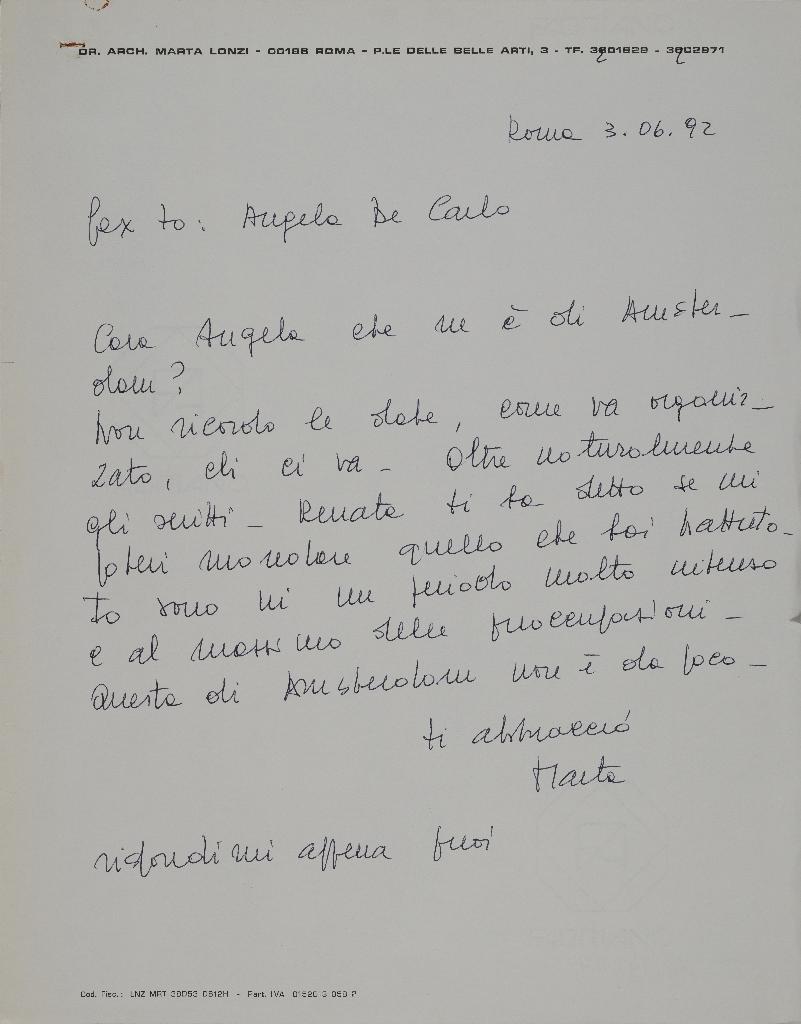 DR. ARCH. MARTA LONZI - 00196 ROMA - P.LE DELLE BELLE ARTI, 3 - TF. 3201829 - 3202971
Roma 3.06.92
fax to: Angela De Carlo
Cara Angela che ne è di Amster-
dam?
Non ricordo le date, come va organiz-
zato, chi ci va - Oltre naturalmente
gli scritti - Renata ti ha detto se mi
poteri mandare quello che hai battuto -
Io sono in un periodo molto intenso
e al massimo delle preoccupazioni -
Questa di Amsterdam non è da poco -
ti abbraccio
Marta
rispondimi appena puoi
Cod. Fisc.: LNZ MRT 38D53 D612H - Part. IVA